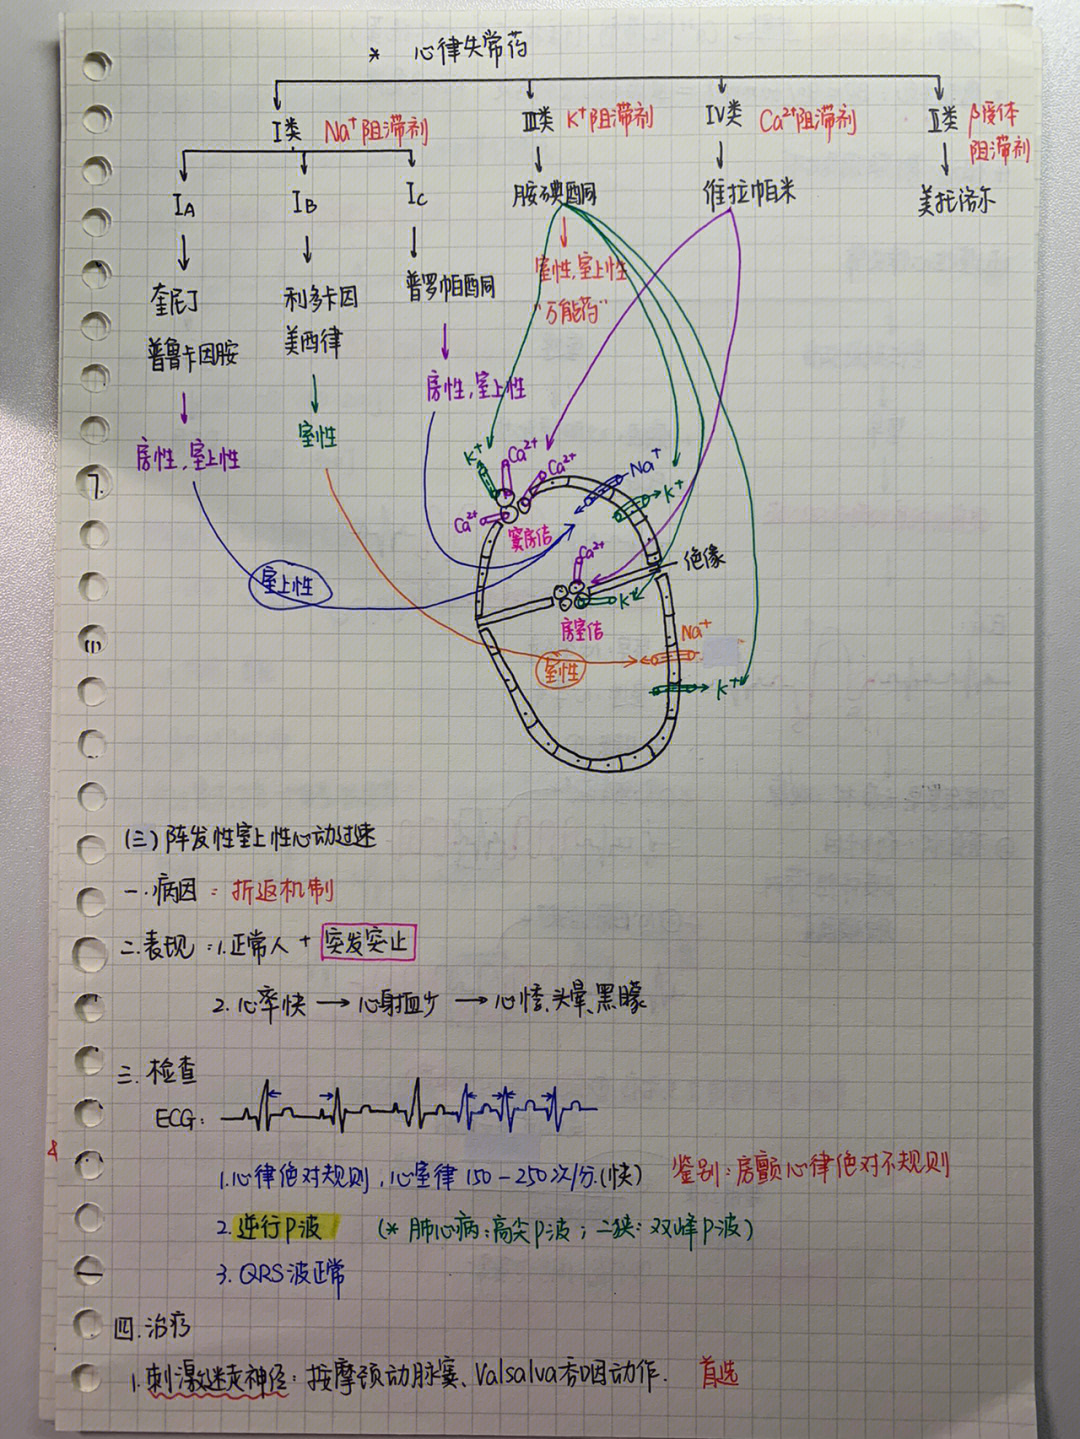 * 心律失常药
I类 Na⁺阻滞剂
III类 K⁺阻滞剂
IV类 Ca²⁺阻滞剂
II类 β受体阻滞剂
IA
IB
IC
胺碘酮
维拉帕米
美托洛尔
奎尼丁
普鲁卡因胺
利多卡因
美西律
普罗帕酮
室性,室上性
"万能药"
房性,室上性
室性
房性,室上性
K⁺
Ca²⁺
Ca²⁺
Na⁺
K⁺
Ca²⁺
窦房结
Ca²⁺
绝缘
室上性
K⁺
房室结
Na⁺
室性
K⁺
7.
(1)
(三)阵发性室上性心动过速
一.病因:折返机制
二.表现:1.正常人+突发突止
2.心率快→心射血少→心悸、头晕、黑矇
三.检查
ECG:
1.心律绝对规则,心室律150-250次/分.(快) 鉴别:房颤心律绝对不规则
2.逆行P波 (*肺心病:高尖P波;二狭:双峰P波)
3.QRS波正常
四.治疗
1.刺激迷走神经:按摩颈动脉窦、Valsalva吞咽动作. 首选